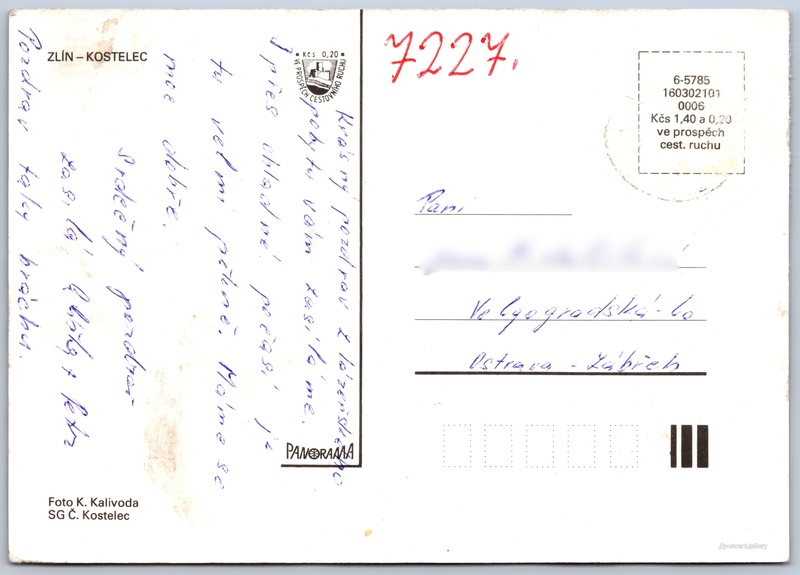 ZLÍN – KOSTELEC
• Kčs 0,20 •
VE PROSPĚCH CESTOVNÍHO RUCHU
7227.
6-5785
160302101
0006
Kčs 1,40 a 0,20
ve prospěch
cest. ruchu
Krásný pozdrav z lázeňského
pobytu vám zasíláme.
I přes chladné počasí je
tu velmi pěkně. Máme se
moc dobře.
Srdečný pozdrav
zasílá a Petr
Pozdrav taky bráchu.
Paní
Volgogradská
Ostrava - Zábřeh
PANORAMA
Foto K. Kalivoda
SG Č. Kostelec
//postcard.gallery